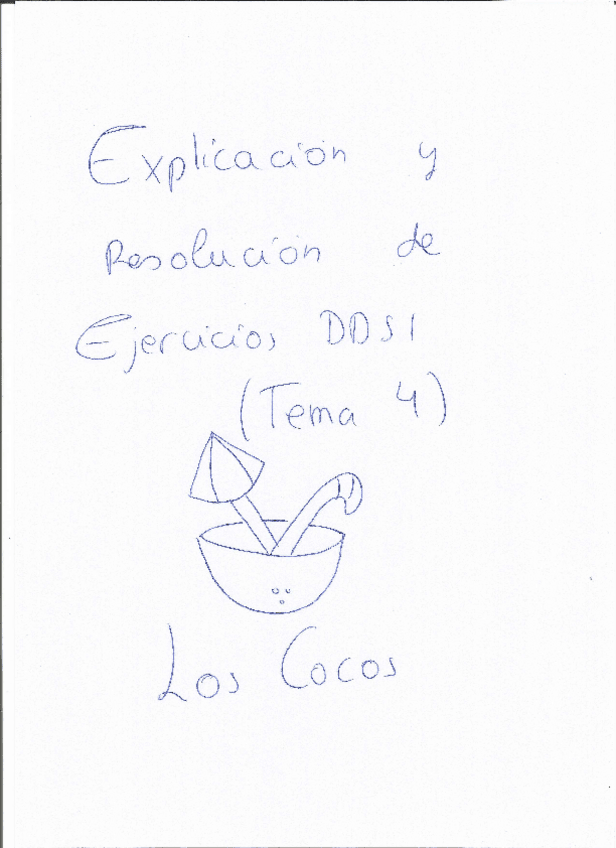 Explicación y
Resolución de
Ejercicios DDSI
(Tema 4)
Los Cocos